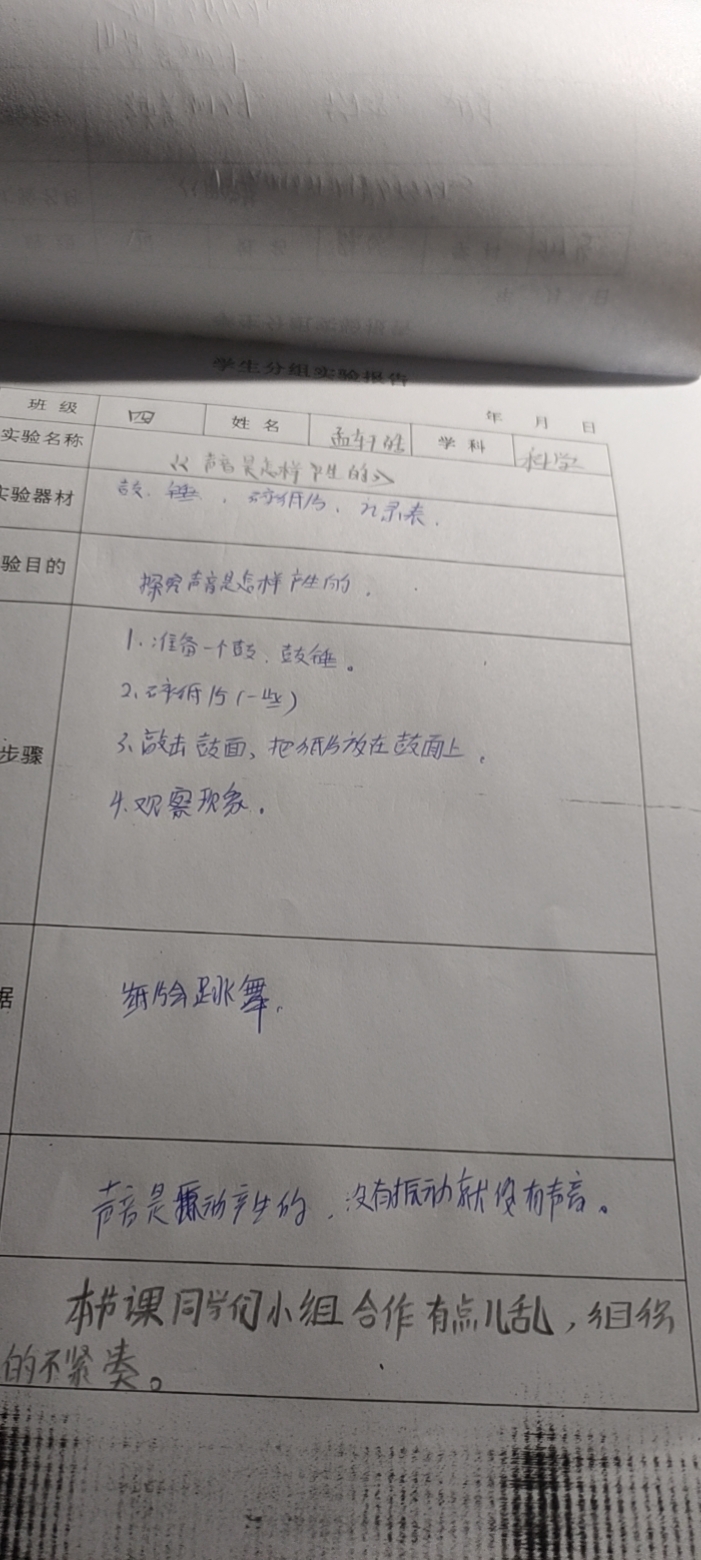 学生分组实验报告
年 月 日
班级 四 姓名 学科 科学
实验名称 《声音是怎样产生的》
实验器材 鼓、锤、碎纸片、记录表.
验目的 探究声音是怎样产生的.
步骤
1.准备一个鼓、鼓锤。
2.碎纸片(一些)
3.敲击鼓面、把纸片放在鼓面上.
4.观察现象.
据 纸片会跳舞.
声音是振动产生的.没有振动就没有声音。
本节课同学们小组合作有点儿乱,组织
的不紧凑。